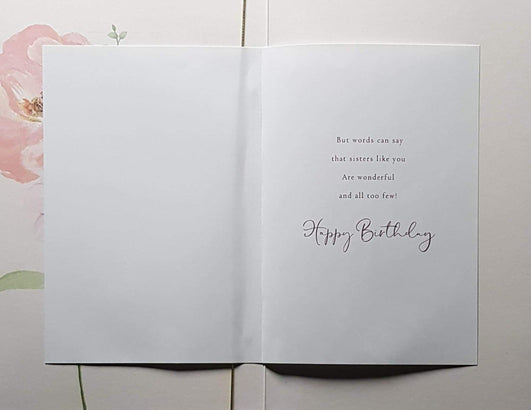 But words can say
that sisters like you
Are wonderful
and all too few!
Happy Birthday